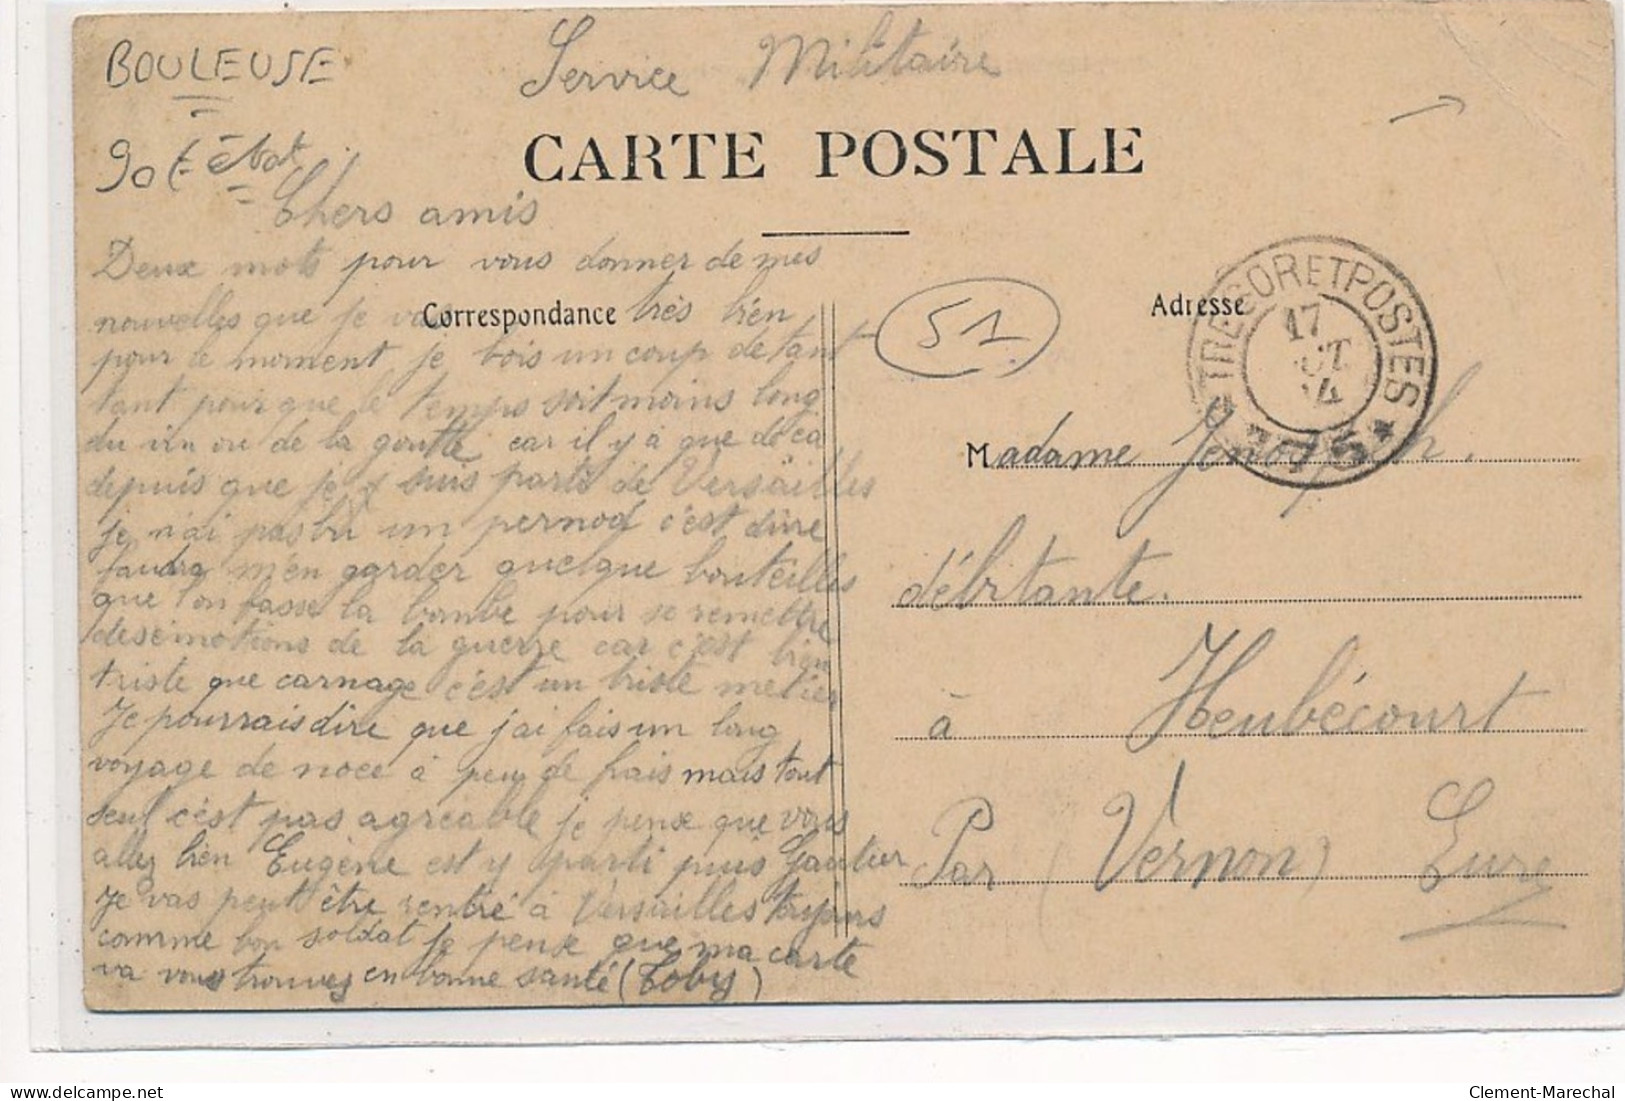 BOULEUSE
Service Militaire
CARTE POSTALE
90 (= état
Chers amis
Deux mots pour vous donner de mes
nouvelles que je vas très bien
pour le moment je bois un coup de tant
tant pour que le temps soit moins long
du vin ou de la goutte car il y à que de ca
depuis que je suis parti de Versailles
je n'ai pas bu un pernod c'est dire
faudra m'en garder quelque bouteilles
que l'on fasse la bombe pour se remettre
des émotions de la guerre car c'est bien
triste que carnage c'est un triste metier
Je pourrais dire que j'ai fais un long
voyage de noce à peu de frais mais tout
seul c'est pas agreable je pense que vous
allez bien Eugène est y parti puis Gautier
Je vas peut être rentré à Versailles toujours
comme bon soldat Je pense que ma carte
va vous trouvez en bonne santé (Toby)
Correspondance
51
Adresse
TRESOR ET POSTES
17
OCT
14
* 75 *
Madame
débitante.
à Heubécourt
Par (Vernon) Eure
delcampe.net
Clement-Marechal